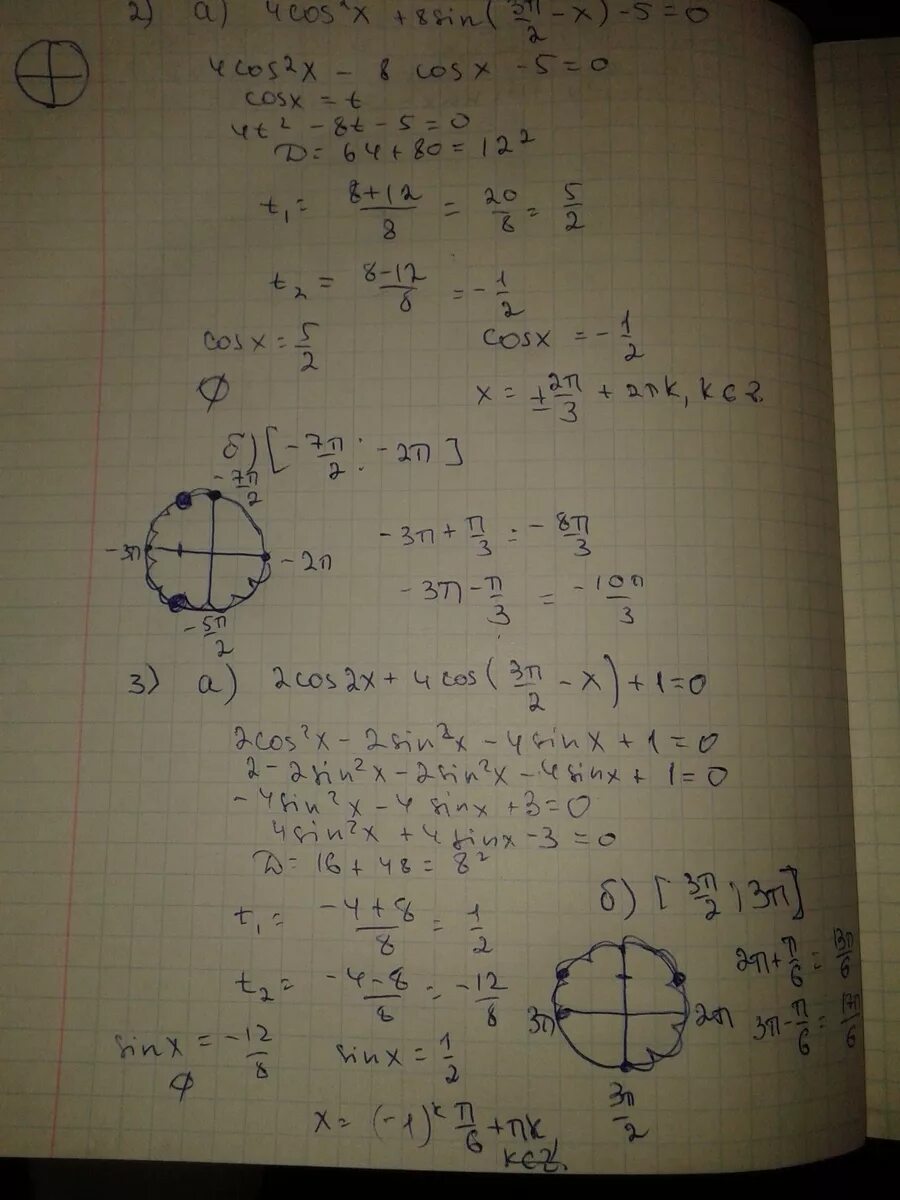 2) а) 4cos²x + 8sin(3π/2 - x) - 5 = 0
4cos²x - 8 cosx - 5 = 0
cosx = t
4t² - 8t - 5 = 0
D = 64 + 80 = 12²
t₁ = (8+12)/8 = 20/8 = 5/2
t₂ = (8-12)/8 = -1/2
cosx = 5/2 cosx = -1/2
∅ x = ± 2π/3 + 2πk, k∈z
б) [-7π/2 ; -2π]
-7π/2
-3π -2π
-5π/2
-3π + π/3 = -8π/3
-3π - π/3 = -10π/3
3) а) 2cos2x + 4cos(3π/2 - x) + 1 = 0
2cos²x - 2sin²x - 4sinx + 1 = 0
2 - 2sin²x - 2sin²x - 4sinx + 1 = 0
-4sin²x - 4sinx + 3 = 0
4sin²x + 4sinx - 3 = 0
D = 16 + 48 = 8²
t₁ = (-4+8)/8 = 1/2
t₂ = (-4-8)/8 = -12/8
sinx = -12/8 sinx = 1/2
∅
x = (-1)^k π/6 + πk
k∈Z
б) [3π/2 ; 3π]
3π 2π
3π/2
2π + π/6 = 13π/6
3π - π/6 = 17π/6